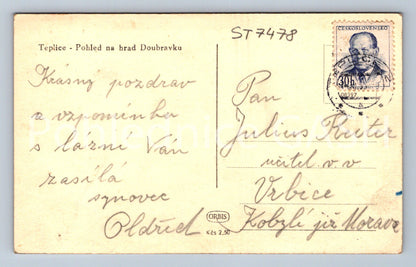 ST7478
ČESKOSLOVENSKO
Teplice - Pohled na hrad Doubravku
Krásný pozdrav
a vzpomínka
s lázní Vám
zasílá
synovec
Oldřich
Pan
Julius Reiter
učitel v.v
Vrbice
Kobylí již Morava
ORBIS
Kčs 2,50